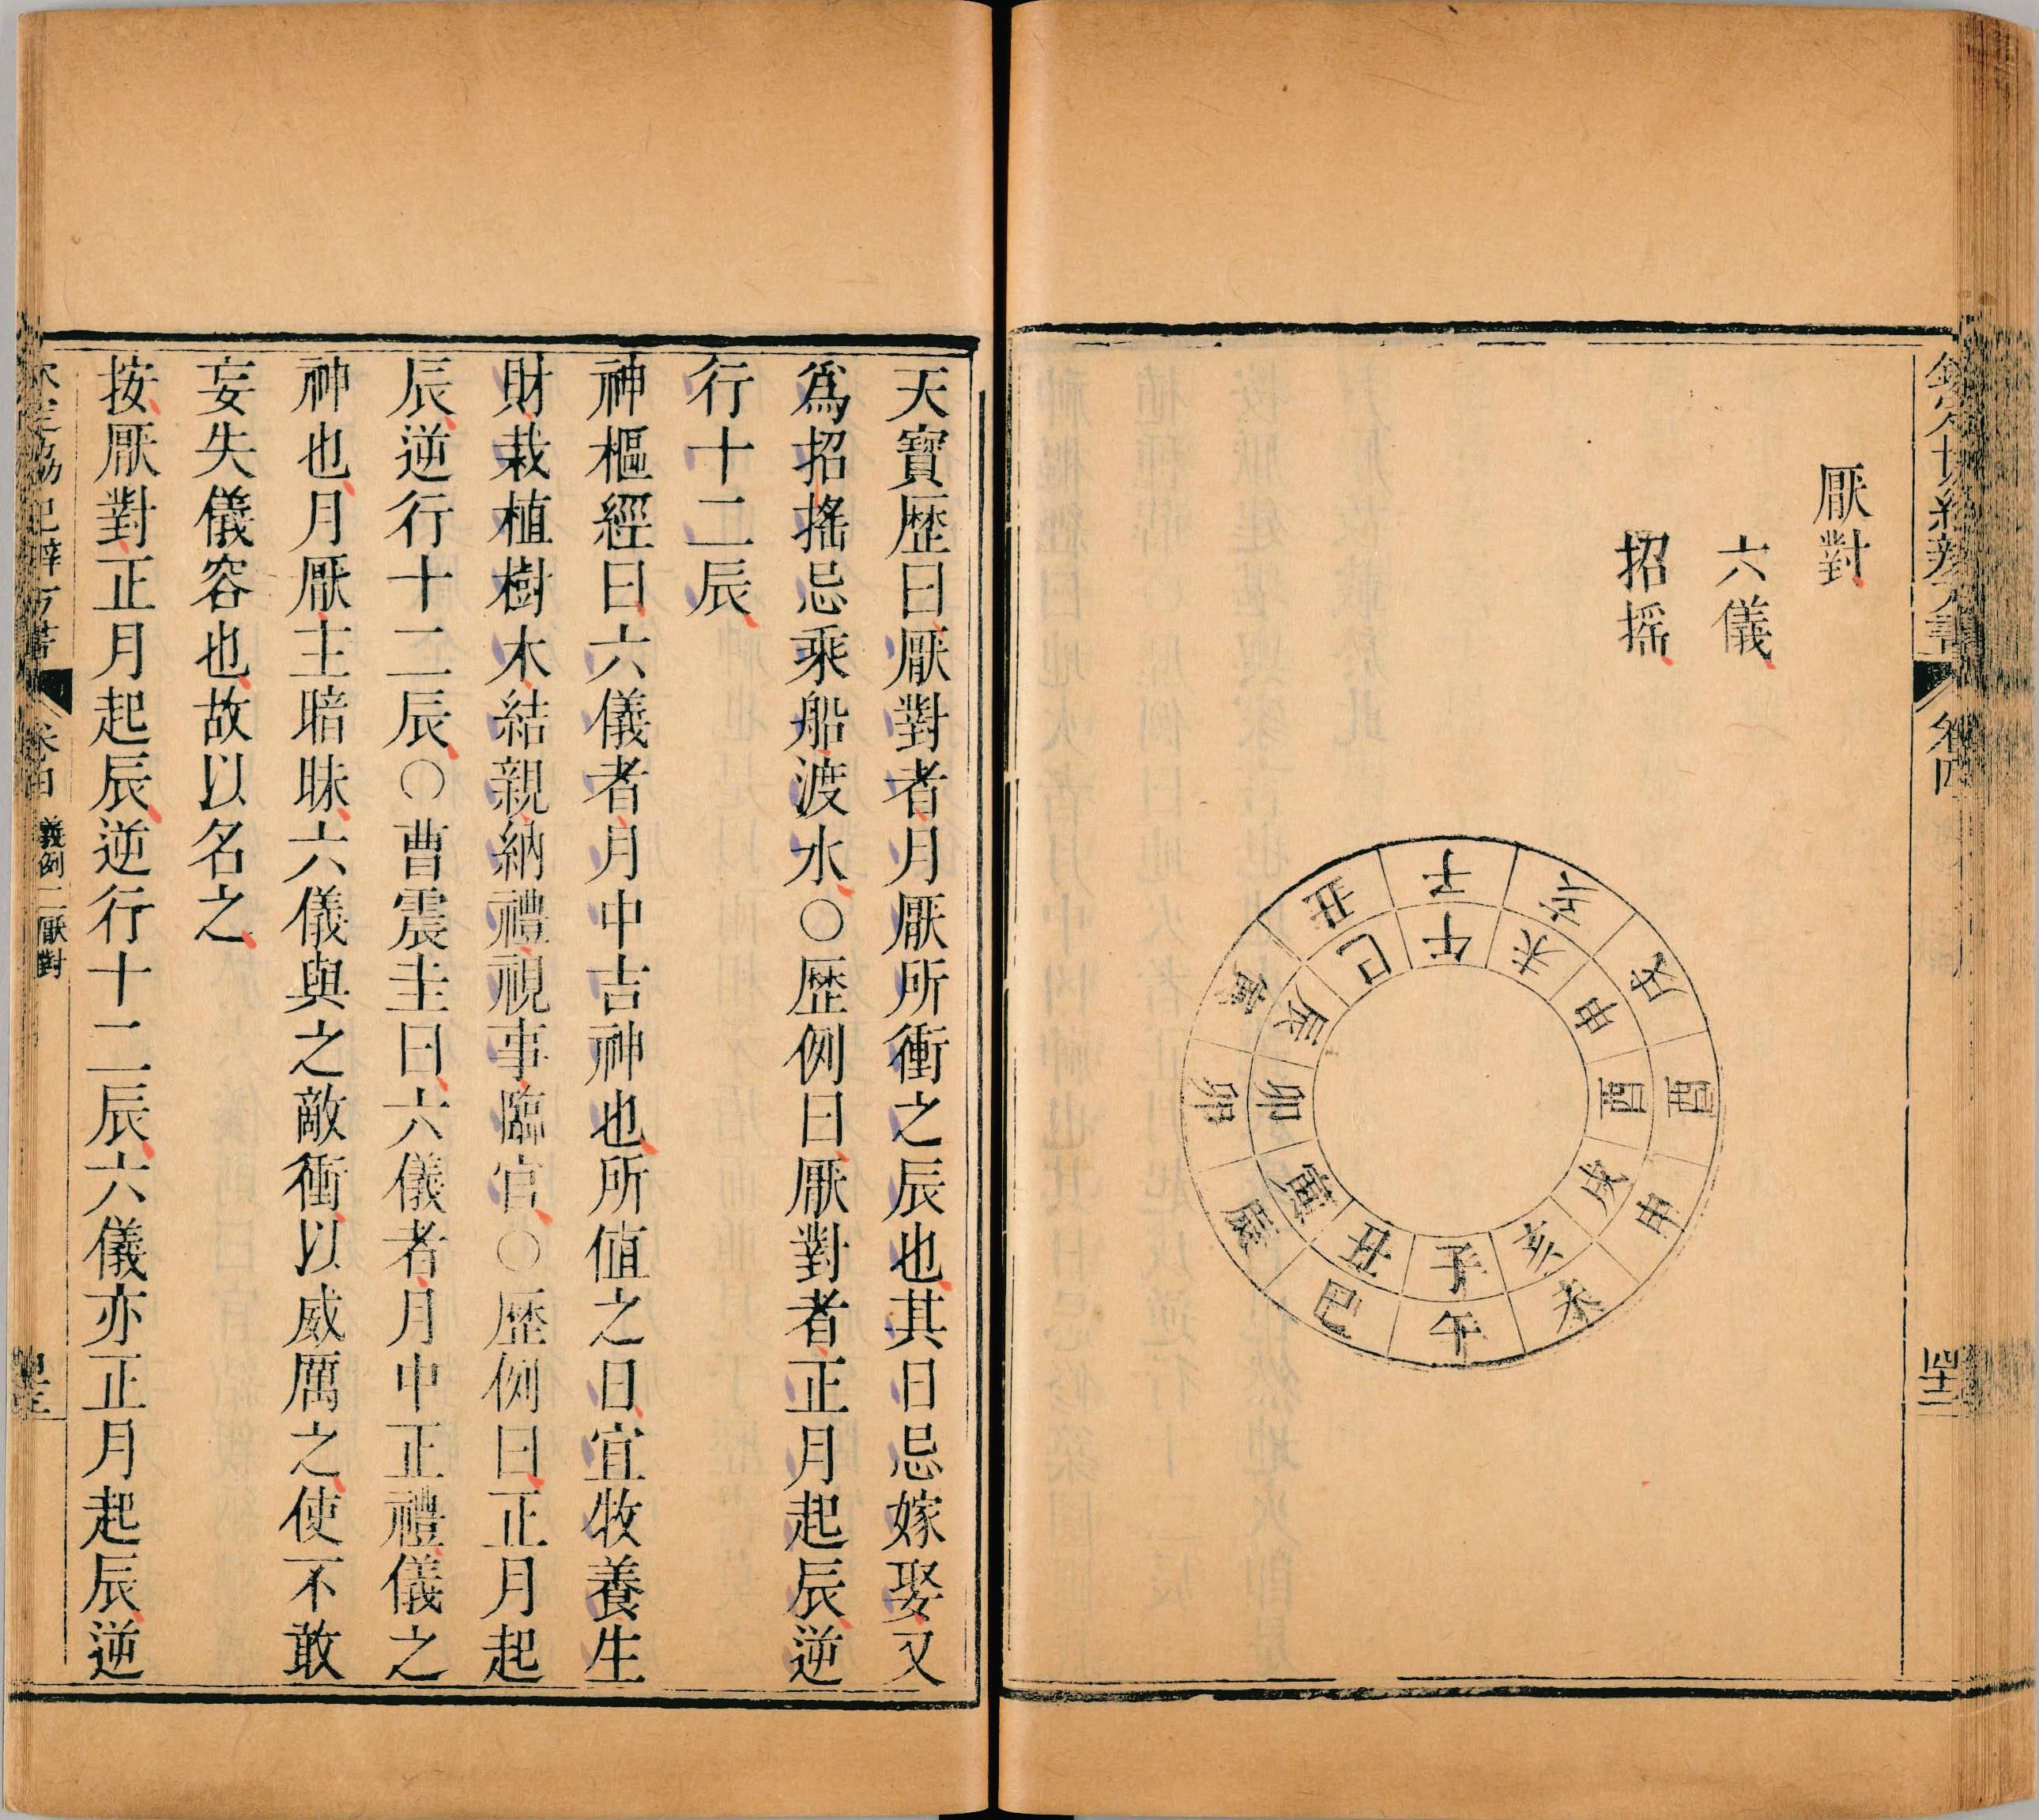 厭對
六儀
招搖
子
亥
戌
酉
申
未
午
巳
辰
卯
寅
丑
午
未
申
酉
戌
亥
子
丑
寅
卯
辰
巳
卷四
天寶歴曰厭對者月厭所衝之辰也其日忌嫁娶又
爲招搖忌乘船渡水○歴例曰厭對者正月起辰逆
行十二辰
神樞經曰六儀者月中吉神也所值之日宜牧養生
財栽植樹木結親納禮視事臨官○歴例曰正月起
辰逆行十二辰○曹震圭曰六儀者月中正禮儀之
神也月厭主暗昧六儀與之敵衝以威厲之使不敢
妄失儀容也故以名之
按厭對正月起辰逆行十二辰六儀亦正月起辰逆
義例二厭對